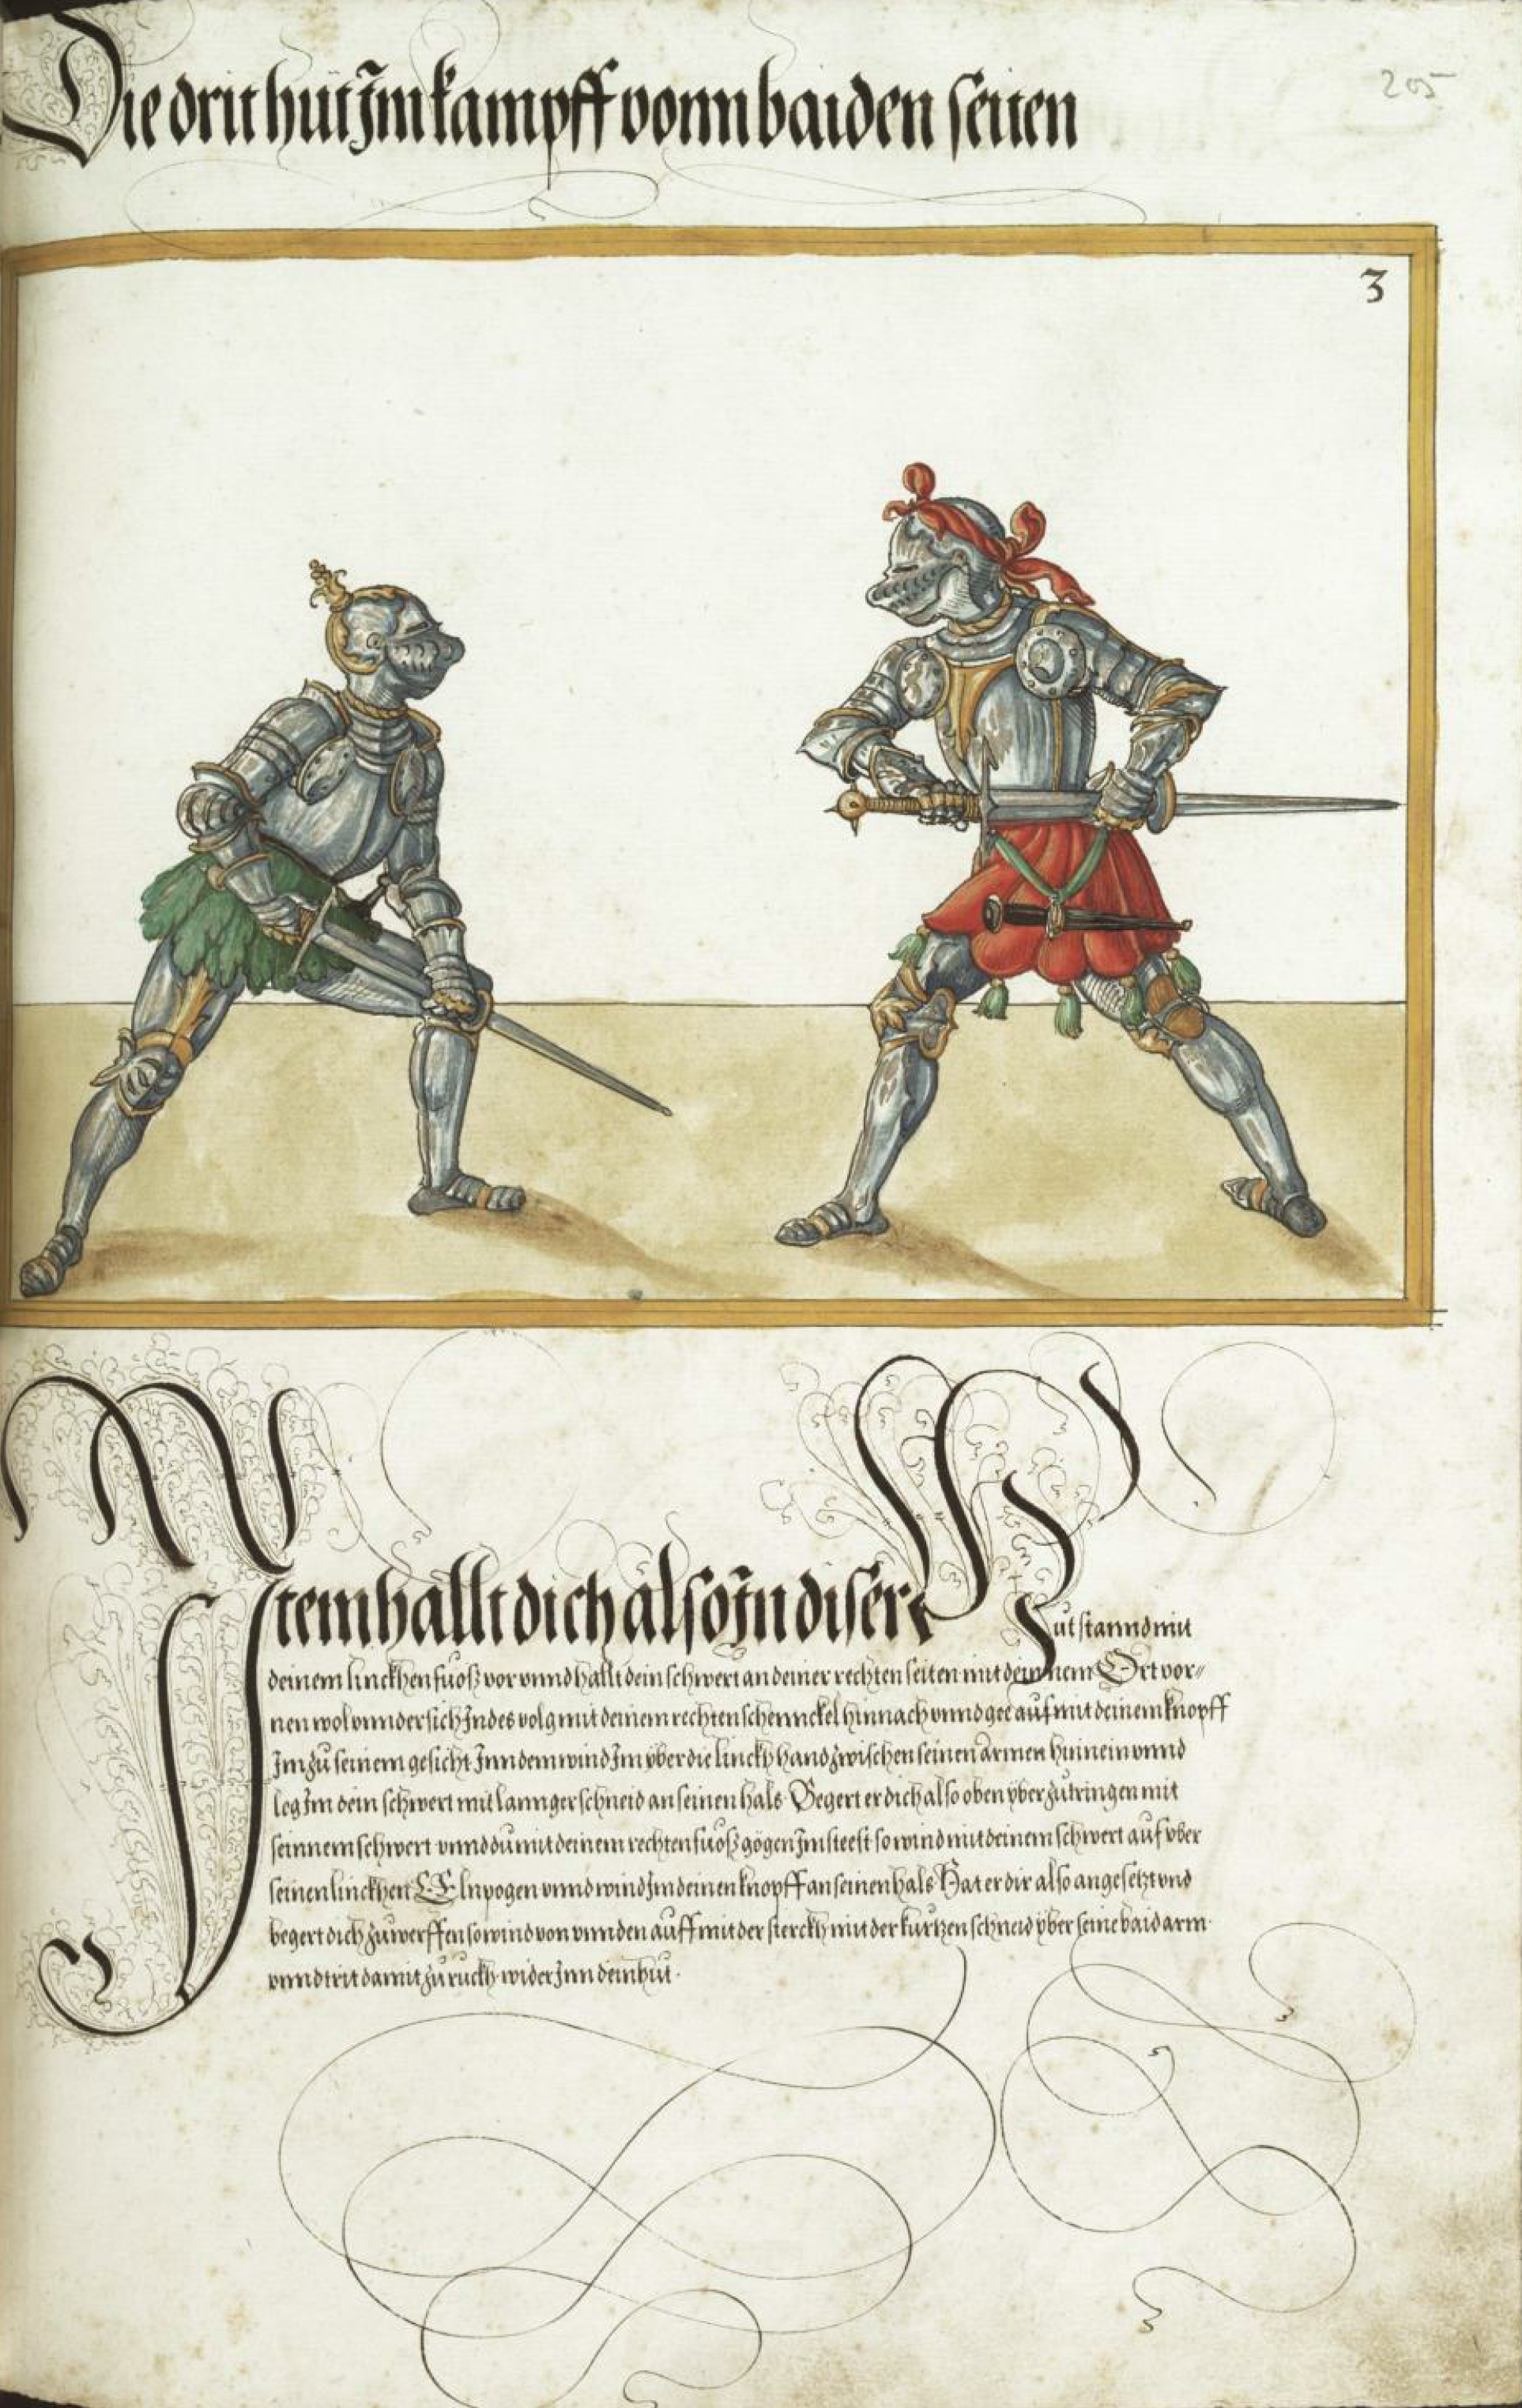 Die drit hut Im kampff vonn baiden seiten
205
3
Item hallt dich also In diser Hut stannd mit
deinem linckhen fuoß vor vnnd hallt dein schwert an deiner rechten seiten mit deinnem Ort vor„
nen wol vnndersich Indes volg mit deinem rechten schennckel hinnach vnnd gee auf mit deinem knopff
Im zu seinem gesicht Inn dem wind Im yber die linckh hand zwischen seinen armen hinein vnnd
leg Im dein schwert mit lannger schneid an seinen hals Begert er dich also oben yber zutringen mit
seinnem schwert vnnd du mit deinem rechten fuoß gögen Im steest so wind mit deinem schwert auf vber
seinen linckhen Elnpogen vnnd wind Im deinen knopff an seinen hals Hat er dir also angesetzt vnd
begert dich zu werffen so wind von vnnden auff mit der sterckh mit der kurtzen schneid yber seine baid arm
vnnd trit damit zu ruckh wider Inn dein hut.